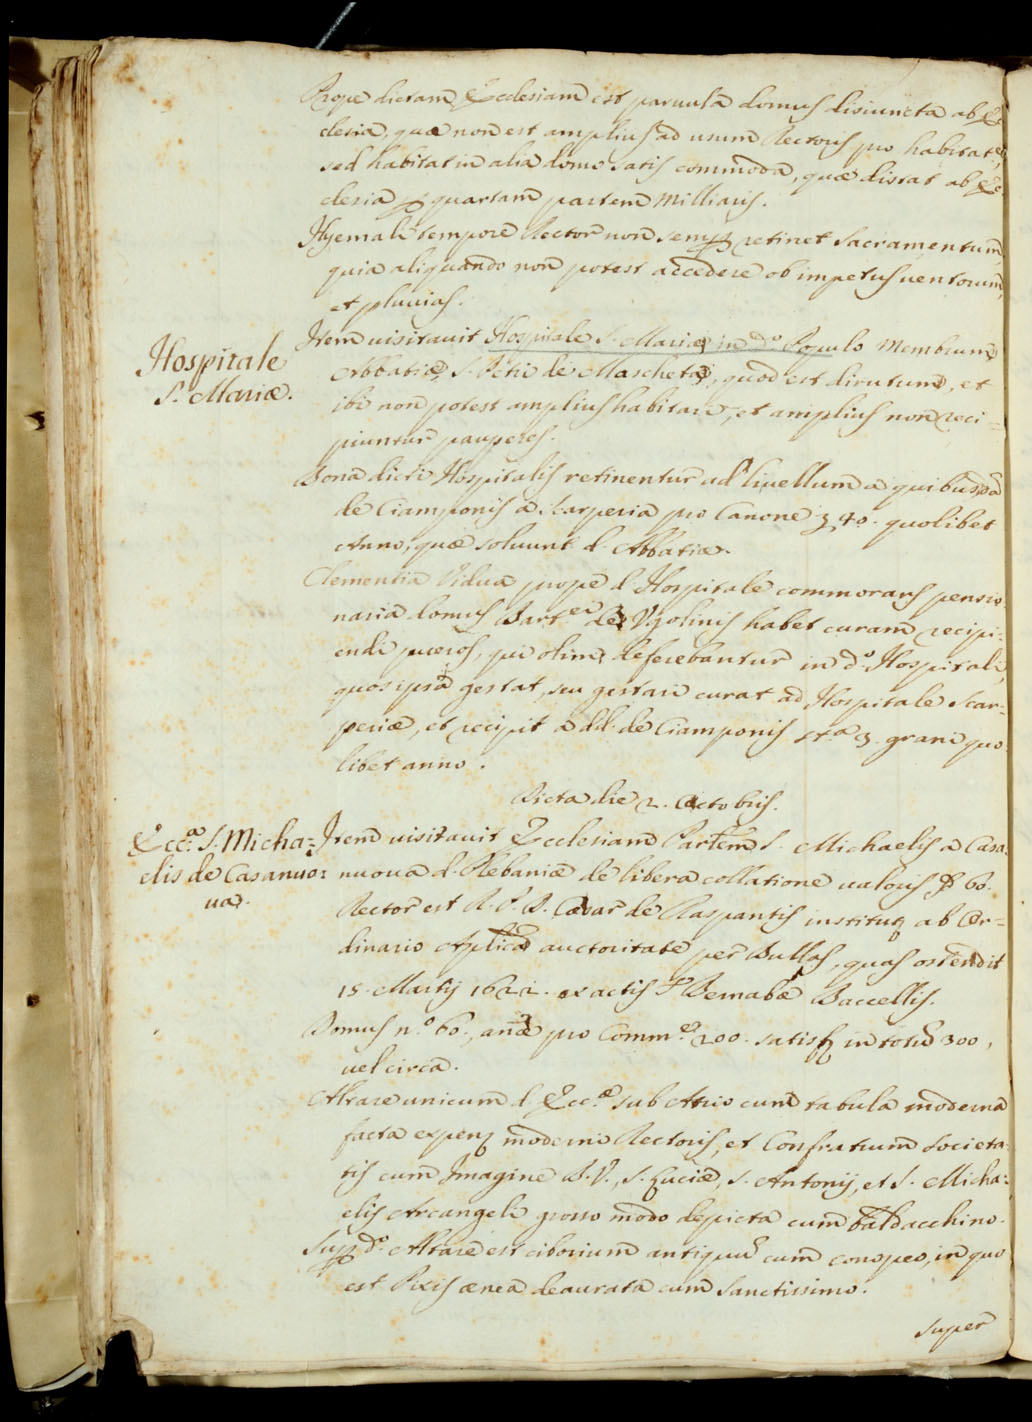 Prope dictam Ecclesiam est paruula domus disiuncta ab Ec
clesia, quæ non est amplius ad usum Rectoris pro habitat.e
sed habitat in alia domo satis commoda, quæ distat ab Ec
clesia p quartam partem Milliaris.
Hyemali tempore Rector non semp retinet Sacramentum,
quia aliquando non potest accedere ob impetus uentorum,
et pluuias.
Hospitale
S. Mariæ.
Item uisitauit Hospitale S. Mariæ in d.º Populo Membrum
Abbatiæ S. Petri de Moscheta, quod est dirutum, et
ibi non potest amplius habitari, et amplius non reci=
piuntur pauperes.
Bona dicti Hospitalis retinentur ad liuellum a quibusdã
de Ciamponis a Scarperia pro Canone 40. quolibet
Anno, quæ soluunt d. Abbatiæ.
Clementia Vidua prope d. Hospitale commorans pensio
naria domus Bart.ei de Vgolinis habet curam recipi=
endi pueros, qui olim deferebantur in d.º Hospitali,
quos ipsa gestat, seu gestari curat ad Hospitale Scar=
periæ, et recipit a dd. de Ciamponis st.a 3. grani quo
libet anno.
Dicta die 2. Octobris.
Ecc.ª S. Micha=
elis de Casanuo=
ua.
Item uisitauit Ecclesiam S. Michaelis a Casa=
nuoua d. Plebaniæ de libera collatione ualoris 60.
Rector est R. P. D. Cæsar de Raspantis institut ab Or=
dinario Aplica auctoritate per Bullas, quas ostendit
15. Martij 1622. ex actis Bernabæ Baccellis.
Domus n.º 60., animæ pro Comm.e 200. satisf in totum 300,
uel circa.
Altare unicum d. Ecc.æ sub Atrio cum tabula moderna
facta expens moderni Rectoris, et Confratrum Societa=
tis cum Imagine B. V., S. Luciæ, S. Antonij, et S. Micha=
elis Arcangeli grosso modo depicta cum baldacchino.
Sup d.º Altare est ciborium antiquum cum conopeo, in quo
est Pixis ænea deaurata cum Sanctissimo.
super